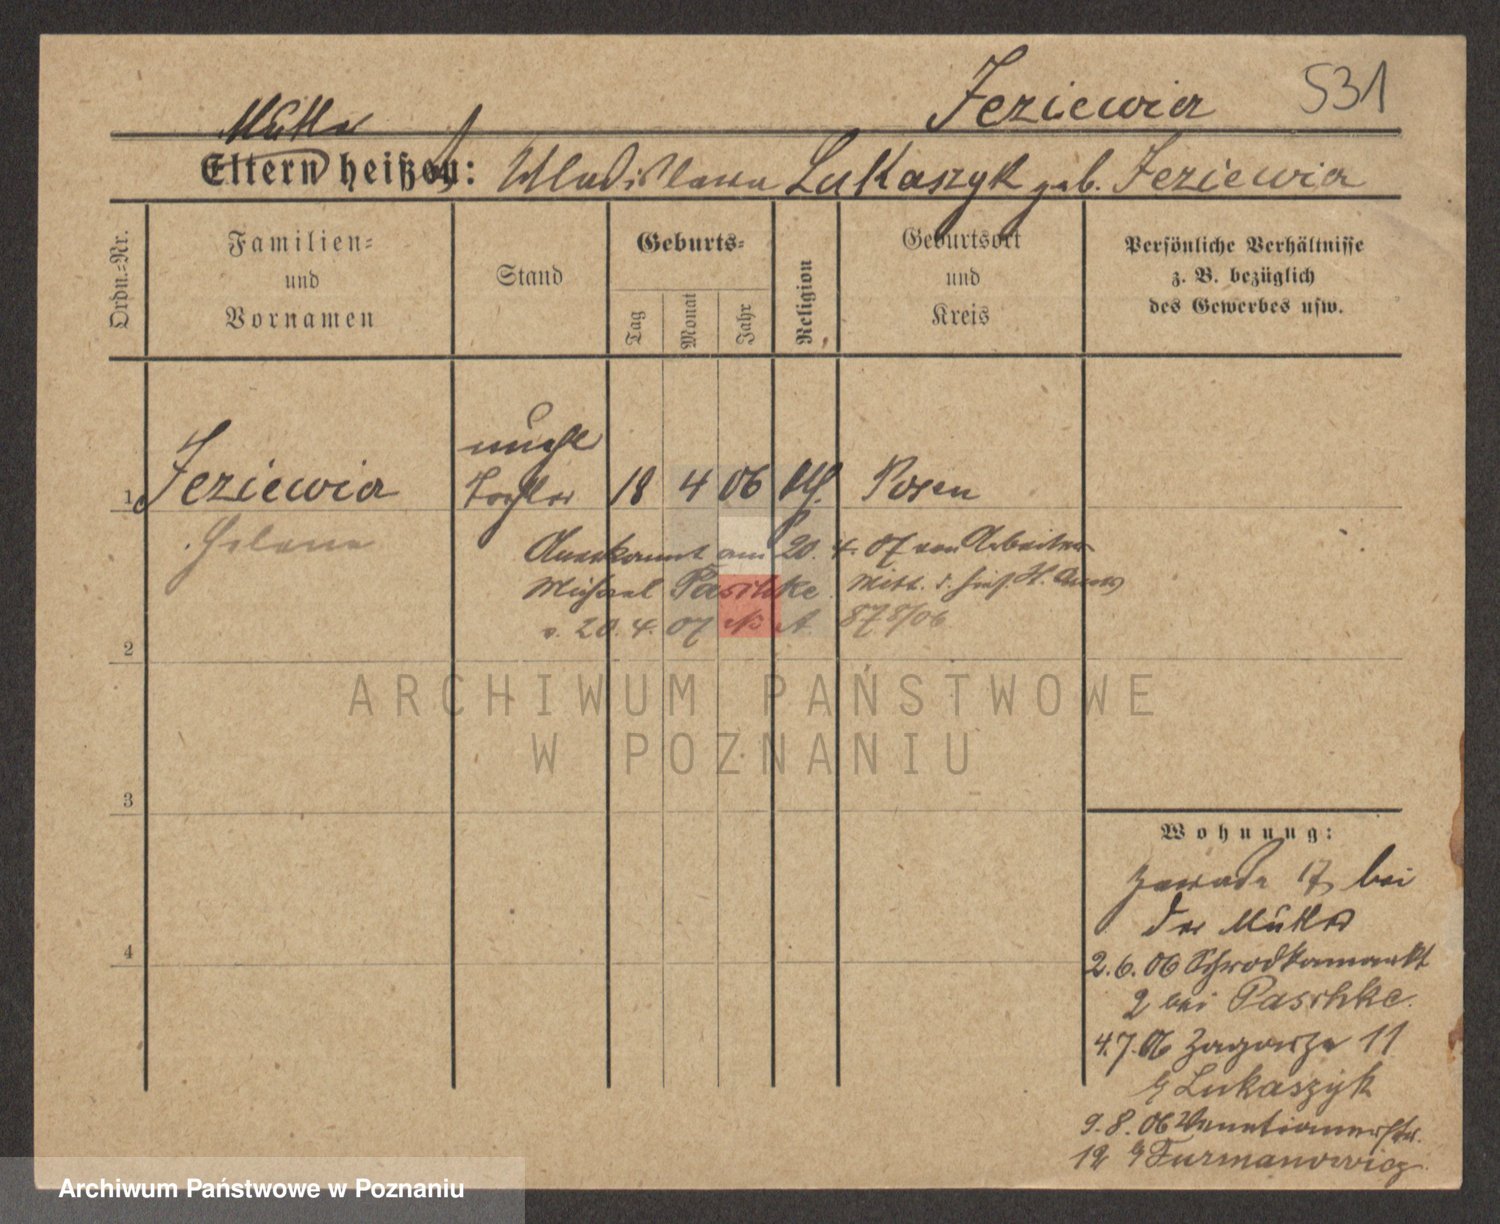 Jeziewia 531
Mutter
Eltern heißen: Wladislawa Lukaszyk geb. Jeziewia
Ordn.-Nr.
Familien-
und
Vornamen
Stand
Geburts-
Tag
Monat
Jahr
Religion
Geburtsort
und
Kreis
Persönliche Verhältnisse
z. B. bezüglich
des Gewerbes usw.
unehl
1 Jeziewia Tochter 18 4 06 kath. Posen
Helena
Anerkannt am 20. 4. 07 von Arbeiter
Michael Paschke. Mitt. d. H.
v. 20. 4. 07 878/06
2
ARCHIWUM PAŃSTWOWE
W POZNANIU
3
4
Wohnung:
Zawade 17 bei
der Mutter
2.6.06 Schrodkamarkt
2 bei Paschke.
4.7.06 Zagorze 11
Lukaszyk
9.8.06 Venetianerstr.
12 Furmanowicz
Archiwum Państwowe w Poznaniu